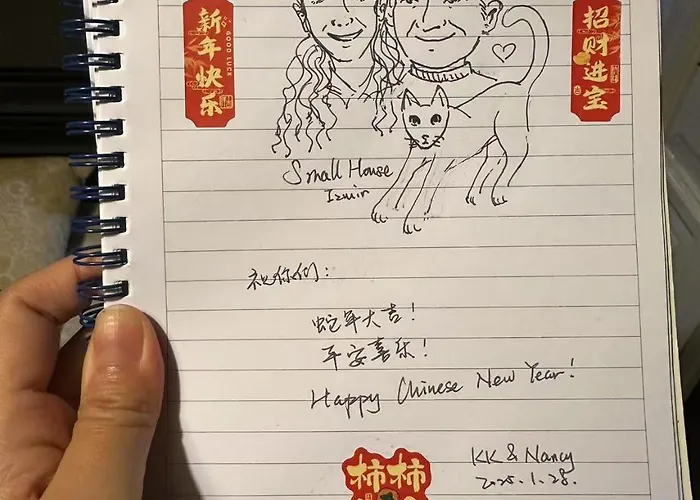 新年快乐
GOOD LUCK
招财进宝
Small House
Izmir
祝你们:
蛇年大吉!
平安喜乐!
Happy Chinese New Year!
柿柿
KK & Nancy
2025.1.28.